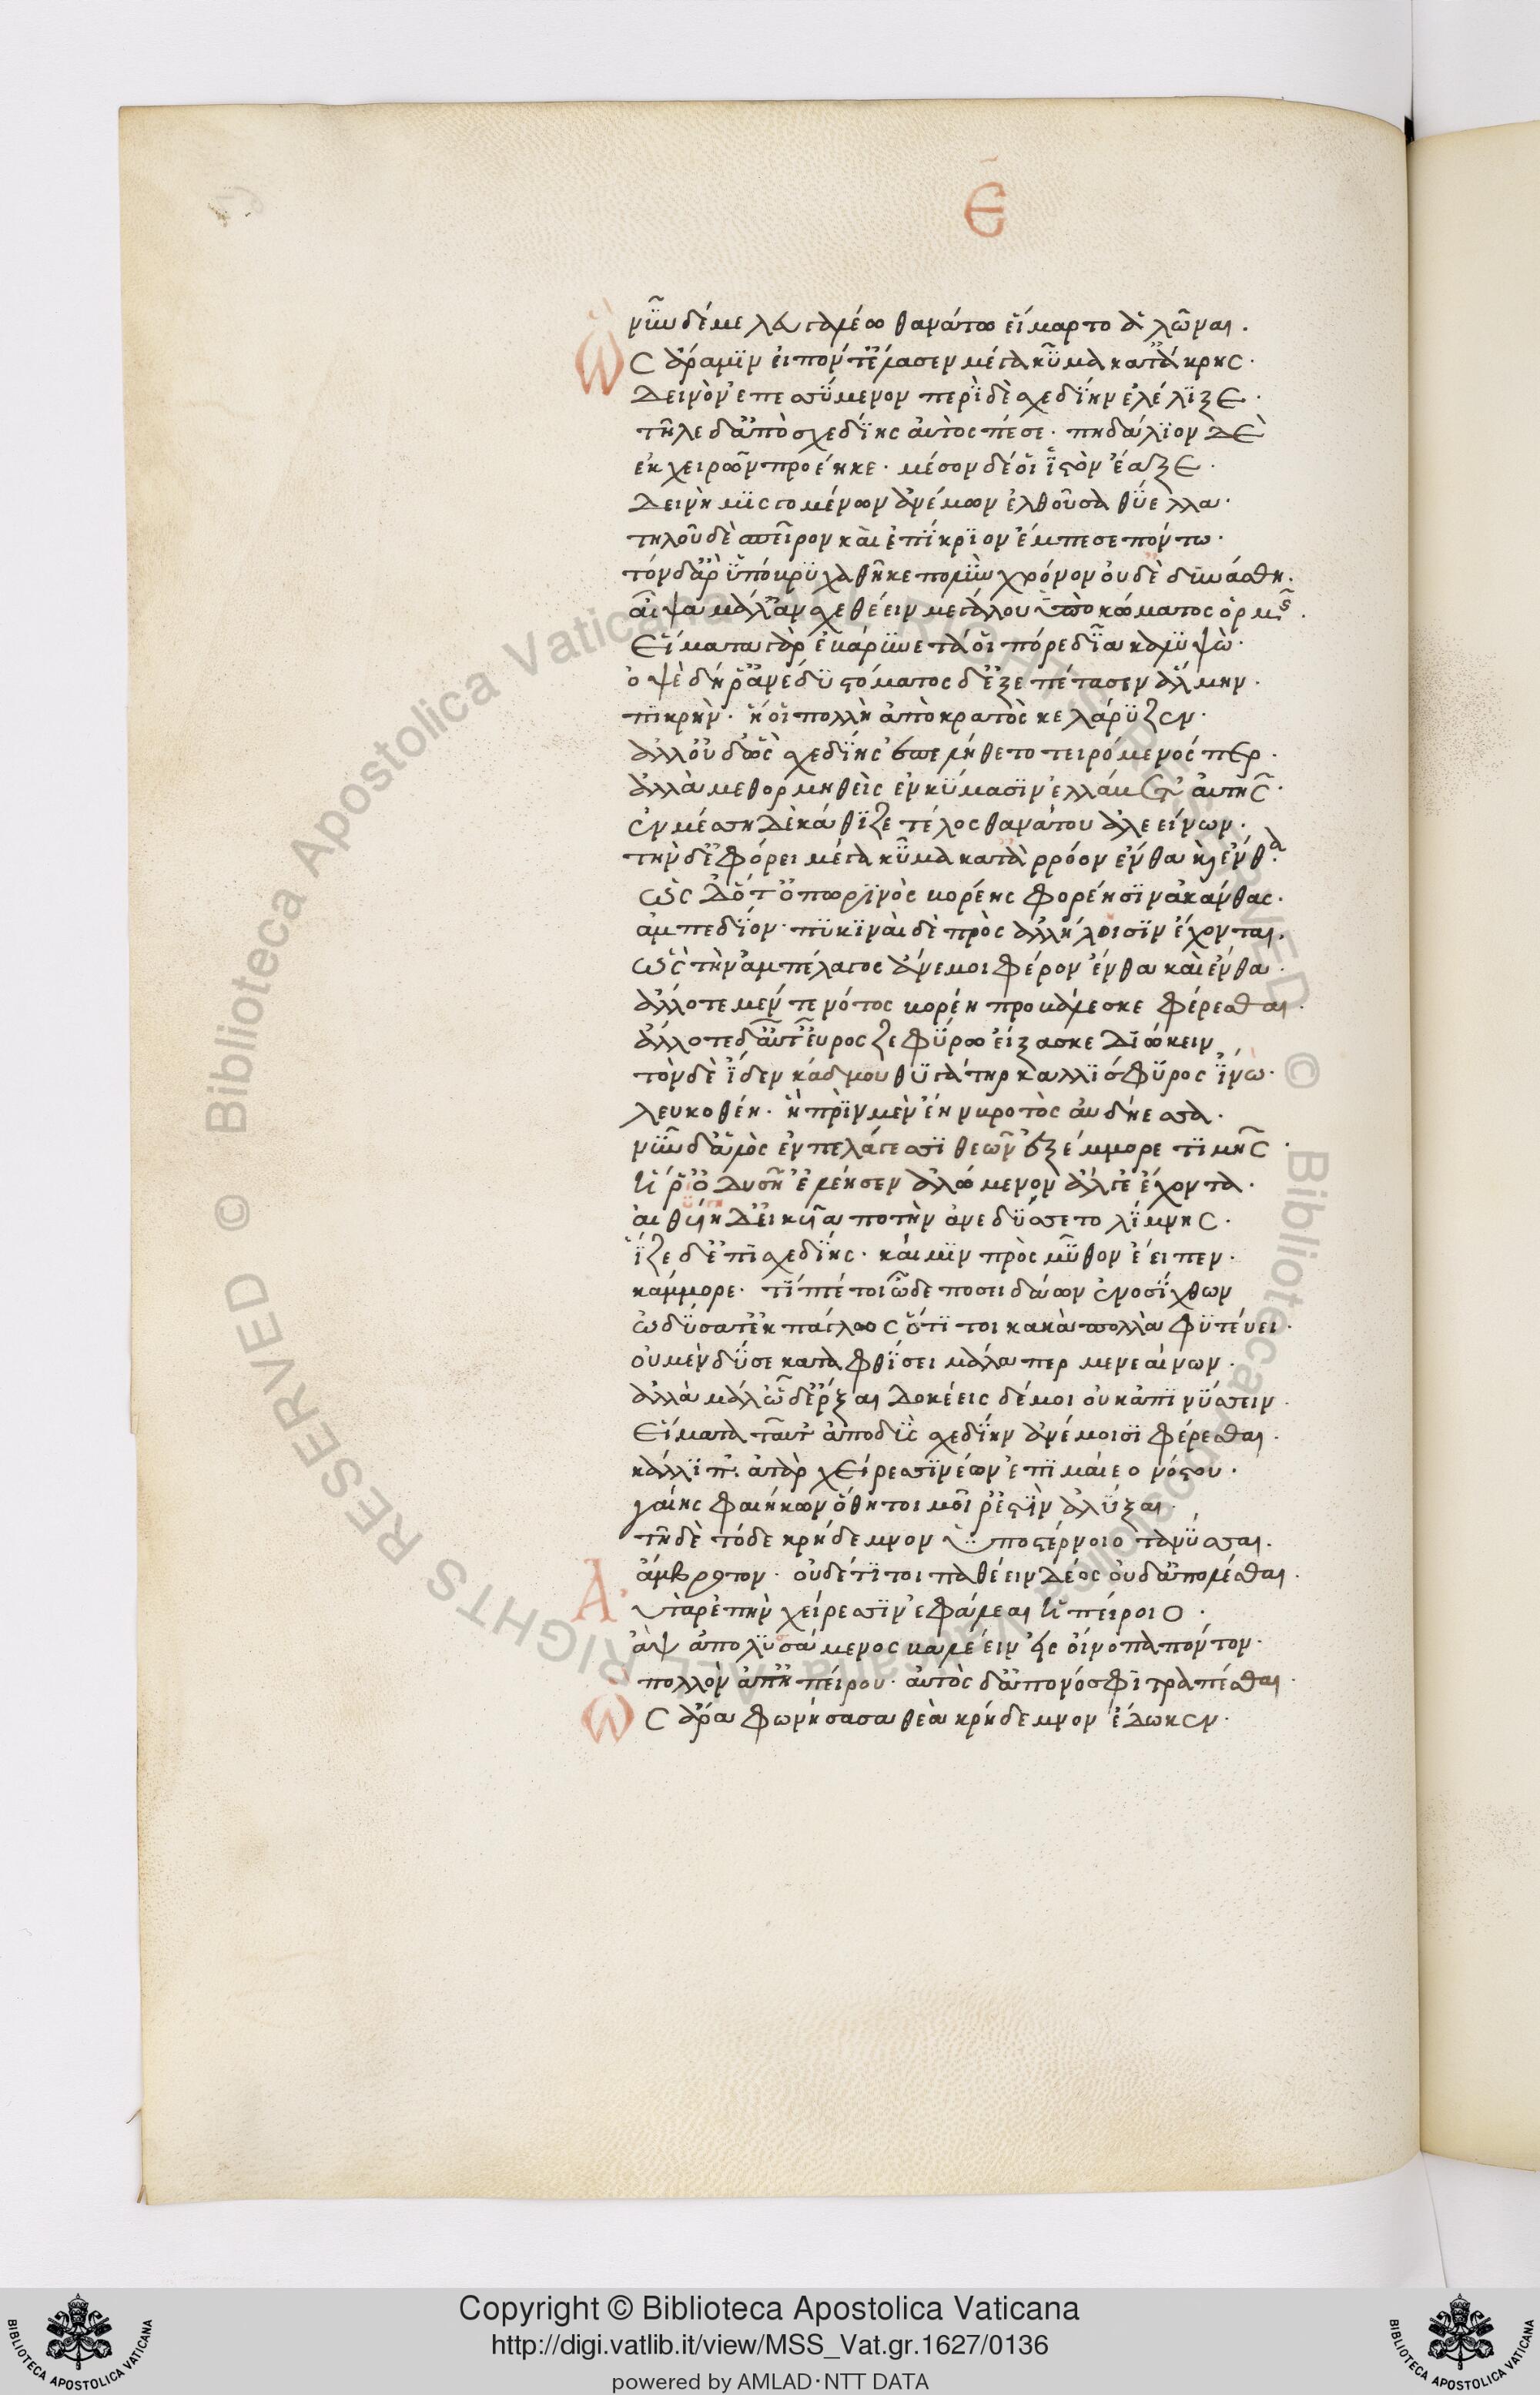 Ε̄
νῦν δέ με λευγαλέω θανάτω εἵμαρτο ἁλῶναι.
Ὣς ἄρα μιν εἰπόντ' ἔλασεν μέγα κῦμα κατ' ἄκρης.
δεινὸν ἐπεσσύμενον περὶ δὲ σχεδίην ἐλέλιξε.
τῆλε δ' ἀπὸ σχεδίης αὐτὸς πέσε. πηδάλιον δὲ
ἐκ χειρῶν προέηκε. μέσον δέ οἱ ἱστὸν ἔαξε.
δεινὴ μισγομένων ἀνέμων ἐλθοῦσα θύελλα.
τηλοῦ δὲ σπεῖρον καὶ ἐπίκριον ἔμπεσε πόντω.
τὸν δ' ἄρ' ὑπόβρυχα θῆκε πολὺν χρόνον οὐδὲ δυνάσθη.
αἶψα μάλ' ἀνσχεθέειν μεγάλου ὑπὸ κύματος ὁρμῆς.
εἵματα γάρ ἐβάρυνε τά οἱ πόρε δῖα καλυψώ.
ὀψὲ δὴ ῥ' ἀνέδυ στόματος δ' ἐξέπτασεν ἅλμην.
πικρὴν. ἥ οἱ πολλὴ ἀπὸ κρατὸς κελάρυζεν.
ἀλλ' οὐδ' ὣς σχεδίης ἐπελήθετο τειρόμενός περ.
ἀλλὰ μεθορμηθεὶς ἐν κύμασιν ἐλλάβετ' αὐτῆς.
ἐν μέσση δὲ κάθιζε τέλος θανάτου ἀλεείνων.
τὴν δ' ἐφόρει μέγα κῦμα κατὰ ῥρόον ἔνθα καὶ ἔνθα.
ὡς δ' ὅτ' ὀπωρινὸς βορέης φορέησιν ἀκάνθας.
ἀμπεδίον. πυκιναὶ δὲ πρὸς ἀλλήλοισιν ἔχονται.
ὣς τὴν ἀμπέλαγος ἄνεμοι φέρον ἔνθα καὶ ἔνθα.
ἄλλοτε μέν τε νότος βορέη προβάλεσκε φέρεσθαι.
ἄλλοτε δ' αὖτ' εὖρος ζεφύρω εἴξασκε διώκειν
τὸν δὲ ἴδεν κάδμου θυγάτηρ καλλίσφυρος ἰνώ.
λευκοθέη. ἣ πρὶν μὲν ἔην βροτὸς αὐδήεσσα.
νῦν δ' ἁλὸς ἐν πελάγεσσι θεῶν ἐξέμμορε τιμῆς.
ἥ ῥ' ὀδυσῆ' ἐλέησεν ἀλώμενον ἄλγε' ἔχοντα.
αἰθυίη δ' εἰκυῖα ποτὴν ἀνεδύσετο λίμνης.
ἷζε δ' ἐπὶ σχεδίης. καί μιν πρὸς μῦθον ἔειπεν.
κάμμορε. τίπτέ τοι ὧδε ποσειδάων ἐνοσίχθων
ὠδύσατ' ἐκπάγλως ὅτι τοι κακὰ πολλὰ φυτεύει.
οὐ μὲν δύσε καταφθίσει μάλα περ μενεαίνων.
ἀλλὰ μάλ' ὧδ' ἔρξαι δοκέεις δέ μοι οὐκ ἀπινύσσειν.
εἵματα ταῦτ' ἀποδὺς σχεδίην ἀνέμοισι φέρεσθαι.
κάλλιπ'. ἀτὰρ χείρεσσι νέων ἐπιμαίεο νόστου.
γαίης φαιήκων ὅθι τοι μοῖρ' ἐστὶν ἀλύξαι.
τῆ δὲ τόδε κρήδεμνον ὑπὸ στέρνοιο τανύσσαι.
ἄμβροτον. οὐδέ τί τοι παθέειν δέος οὐδ' ἀπολέσθαι.
Αὐτὰρ ἐπὴν χείρεσσιν ἐφάψεαι ἠπείροιο.
ἂψ ἀπολυσάμενος βαλέειν εἰς οἴνοπα πόντον.
πολλὸν ἀπ' ἠπείρου. αὐτὸς δ' ἀπονόσφι τραπέσθαι.
Ὣς ἄρα φωνήσασα θεὰ κρήδεμνον ἔδωκεν.
Copyright © Biblioteca Apostolica Vaticana
http://digi.vatlib.it/view/MSS_Vat.gr.1627/0136
powered by AMLAD·NTT DATA